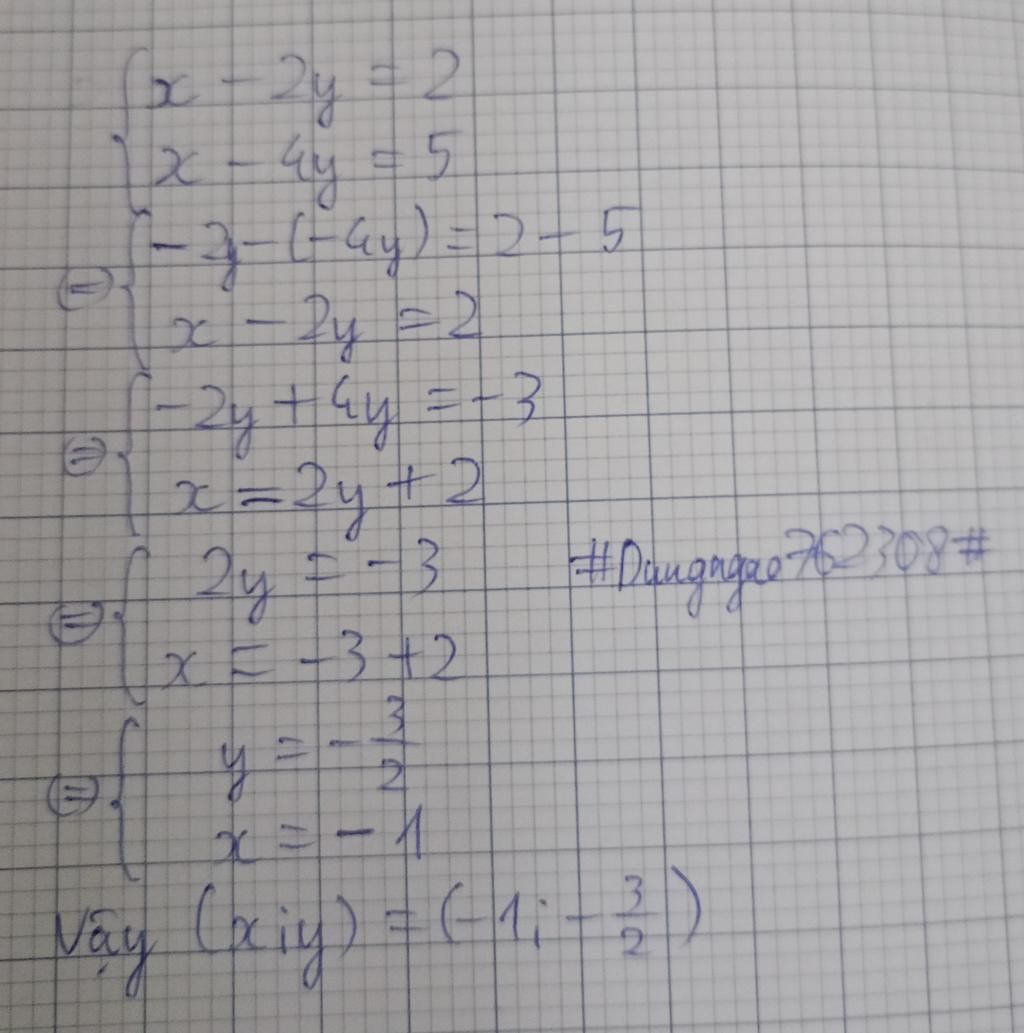 x - 2y = 2
x - 4y = 5
-2y - (-4y) = 2 - 5
⇔
x - 2y = 2
-2y + 4y = -3
⇔
x = 2y + 2
2y = -3
#Dungngao762308#
⇔
x = -3 + 2
y = -3/2
⇔
x = -1
Vậy (x;y) = (-1; -3/2)